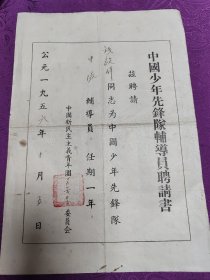 中國少年先鋒隊輔導員聘請書
茲聘請
同志为中國少年先鋒隊
中隊輔導員 任期一年
中國新民主主义青年團 委員会
公元一九五六年 月 日